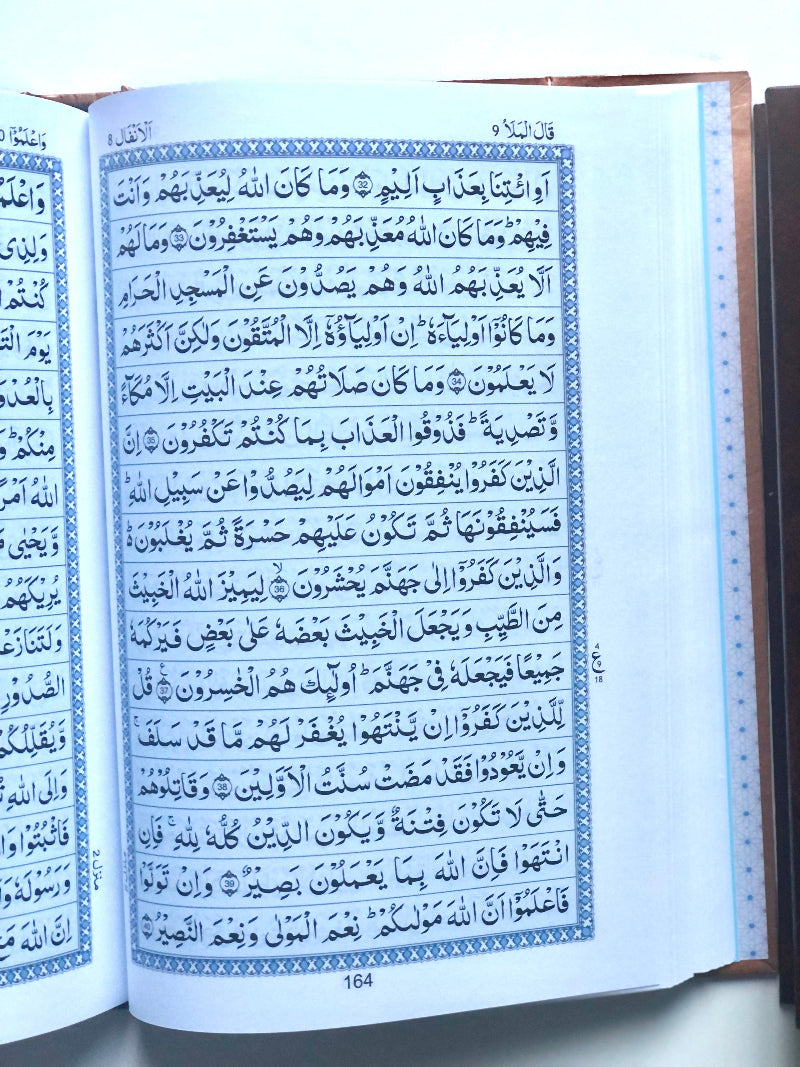 قَالَ الۡمَلَاُ 9
اَلۡاَنۡفَال 8
اَوِ ائۡتِنَا بِعَذَابٍ اَلِيۡمٍ ﴿32﴾ وَمَا كَانَ اللّٰهُ لِيُعَذِّبَهُمۡ وَاَنۡتَ
فِيۡهِمۡ ؕ وَمَا كَانَ اللّٰهُ مُعَذِّبَهُمۡ وَهُمۡ يَسۡتَغۡفِرُوۡنَ ﴿33﴾ وَمَا لَهُمۡ
اَلَّا يُعَذِّبَهُمُ اللّٰهُ وَهُمۡ يَصُدُّوۡنَ عَنِ الۡمَسۡجِدِ الۡحَرَامِ
وَمَا كَانُوۡۤا اَوۡلِيَآءَهٗ ؕ اِنۡ اَوۡلِيَآؤُهٗۤ اِلَّا الۡمُتَّقُوۡنَ وَلٰكِنَّ اَكۡثَرَهُمۡ
لَا يَعۡلَمُوۡنَ ﴿34﴾ وَمَا كَانَ صَلَاتُهُمۡ عِنۡدَ الۡبَيۡتِ اِلَّا مُكَآءً
وَّتَصۡدِيَةً ؕ فَذُوۡقُوا الۡعَذَابَ بِمَا كُنۡتُمۡ تَكۡفُرُوۡنَ ﴿35﴾ اِنَّ
الَّذِيۡنَ كَفَرُوۡا يُنۡفِقُوۡنَ اَمۡوَالَهُمۡ لِيَصُدُّوۡا عَنۡ سَبِيۡلِ اللّٰهِ ؕ
فَسَيُنۡفِقُوۡنَهَا ثُمَّ تَكُوۡنُ عَلَيۡهِمۡ حَسۡرَةً ثُمَّ يُغۡلَبُوۡنَ ؕ
وَالَّذِيۡنَ كَفَرُوۡۤا اِلٰى جَهَنَّمَ يُحۡشَرُوۡنَ ۙ﴿36﴾ لِيَمِيۡزَ اللّٰهُ الۡخَبِيۡثَ
مِنَ الطَّيِّبِ وَيَجۡعَلَ الۡخَبِيۡثَ بَعۡضَهٗ عَلٰى بَعۡضٍ فَيَرۡكُمَهٗ
جَمِيۡعًا فَيَجۡعَلَهٗ فِىۡ جَهَنَّمَ ؕ اُولٰٓٮِٕكَ هُمُ الۡخٰسِرُوۡنَ ﴿37﴾ قُلۡ
ع 4 9 18
لِّلَّذِيۡنَ كَفَرُوۡۤا اِنۡ يَّنۡتَهُوۡا يُغۡفَرۡ لَهُمۡ مَّا قَدۡ سَلَفَ ۚ
وَاِنۡ يَّعُوۡدُوۡا فَقَدۡ مَضَتۡ سُنَّتُ الۡاَوَّلِيۡنَ ﴿38﴾ وَقَاتِلُوۡهُمۡ
حَتّٰى لَا تَكُوۡنَ فِتۡنَةٌ وَّيَكُوۡنَ الدِّيۡنُ كُلُّهٗ لِلّٰهِ ۚ فَاِنِ
انۡتَهَوۡا فَاِنَّ اللّٰهَ بِمَا يَعۡمَلُوۡنَ بَصِيۡرٌ ﴿39﴾ وَاِنۡ تَوَلَّوۡا
فَاعۡلَمُوۡۤا اَنَّ اللّٰهَ مَوۡلٰٮكُمۡ ؕ نِعۡمَ الۡمَوۡلٰى وَنِعۡمَ النَّصِيۡرُ ﴿40﴾
164
وَاعۡلَمُوۡۤا
وَلِذِى
كُنۡتُمۡ
يَوۡمَ
مِنۡكُمۡ ؕ
اللّٰهُ اَمۡرًا
وَّيَحۡيٰى
يُرِيۡكَهُمُ
الصُّدُوۡرِ
وَاِلَى اللّٰهِ
فَاثۡبُتُوۡا
وَرَسُوۡلَهٗ
اِنَّ اللّٰهَ مَعَ
منزل 2